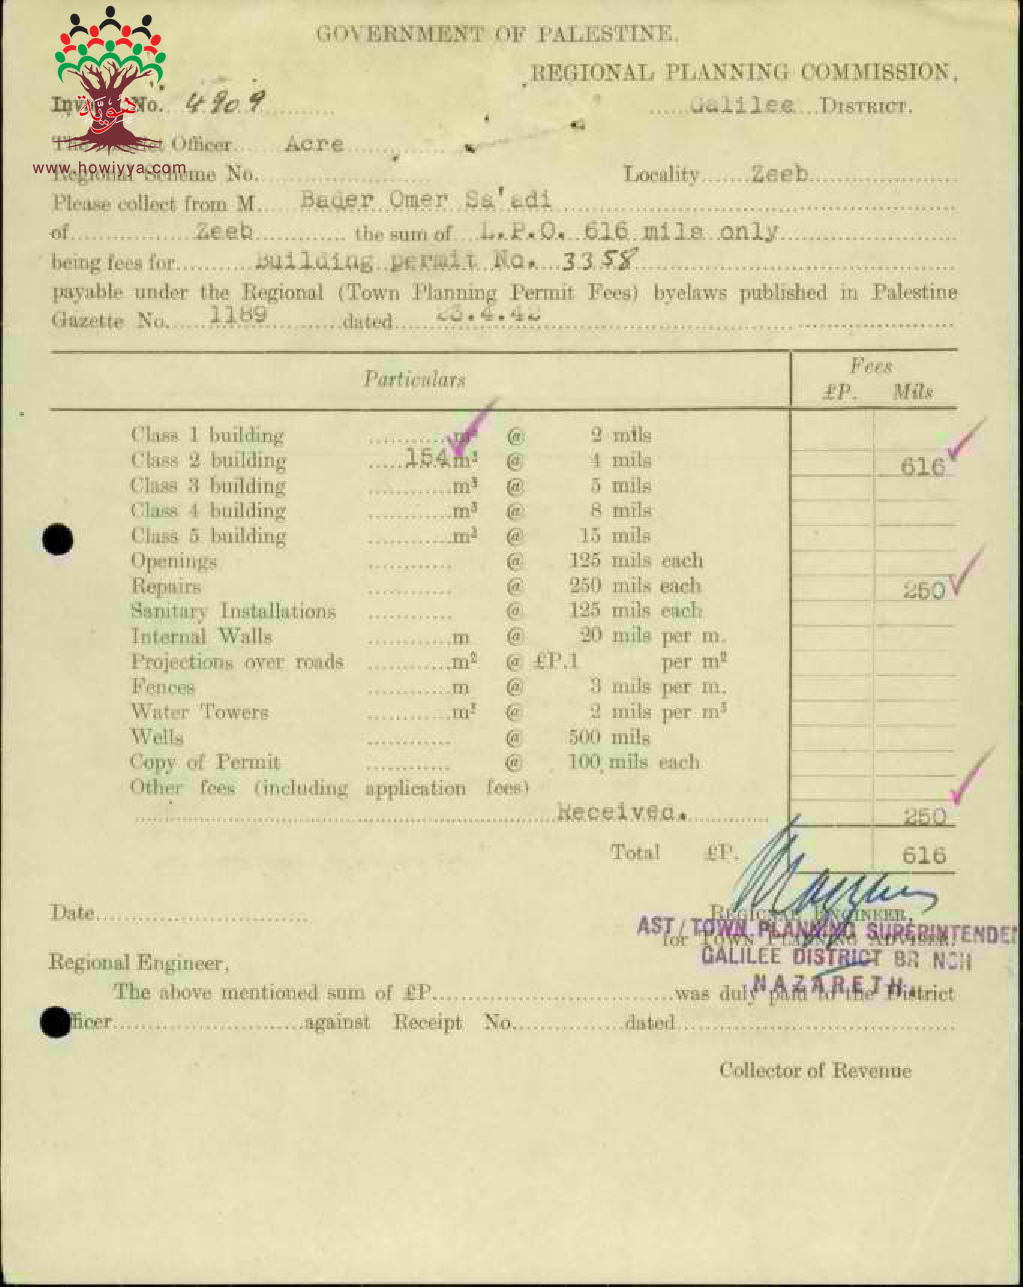 GOVERNMENT OF PALESTINE.
REGIONAL PLANNING COMMISSION,
No. 4909 Galilee DISTRICT.
هوية
Officer Acre
www.howiyya.com
Regional Scheme No. Locality Zeeb
Please collect from M. Bader Omer Sa'adi
of Zeeb the sum of L.P.O. 616 mils only
being fees for Building permit No. 3358
payable under the Regional (Town Planning Permit Fees) byelaws published in Palestine
Gazette No. 1189 dated 23.4.42
Particulars Fees
£P. Mils
Class 1 building m³ @ 2 mils
Class 2 building 154 m³ @ 4 mils 616
Class 3 building m³ @ 5 mils
Class 4 building m³ @ 8 mils
Class 5 building m³ @ 15 mils
Openings @ 125 mils each
Repairs @ 250 mils each 250
Sanitary Installations @ 125 mils each
Internal Walls m @ 20 mils per m.
Projections over roads m² @ £P.1 per m²
Fences m @ 3 mils per m.
Water Towers m³ @ 2 mils per m³
Wells @ 500 mils
Copy of Permit @ 100 mils each
Other fees (including application fees)
Received. 250
Total £P. 616
Date
REGIONAL ENGINEER,
AST/TOWN PLANNING SUPERINTENDEN
for TOWN PLANNING ADVISER.
GALILEE DISTRICT BR NCH
Regional Engineer,
NAZARETH.
The above mentioned sum of £P. was duly paid to the District
fficer against Receipt No. dated
Collector of Revenue